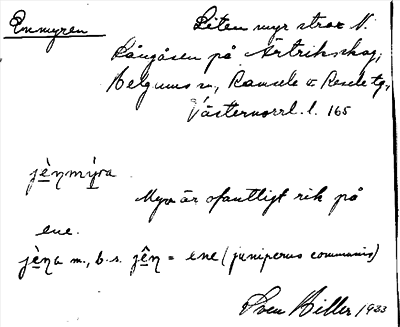 Enmyren Liten myr strax N.
Långåsen på Ärtrikskog,
Helgums sn, Ramsele o Resele tg,
Västernorrl. l. 165
jènmy̆ra
Myr är ofantligt rik på
ene.
jèna m., b.s. jên = ene (juniperus communis)
Sven Hiller 1933